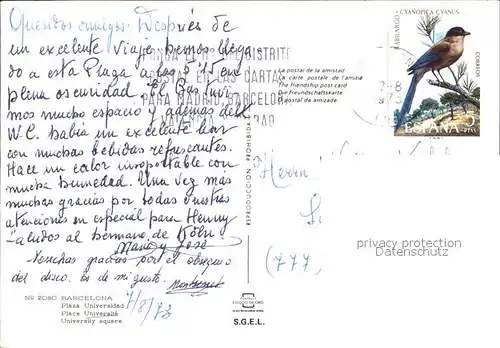 Queridos amigos: Después de
un excelente viaje hemos llega
do a esta Plaza a las 5'15 en
plena oscuridad. El Bas tuvi
mos mucho espacio y además del
W.C. había un excelente bar
con muchas bebidas refrescantes.
Hace un calor insoportable con
mucha humedad. Una vez más
muchas gracias por todas vuestras
atenciones en especial para Henny
saludos al hermano de Köln
Mari y José
Muchas gracias por el obsequio
del disco. es de mi gusto. Montserrat
7/8/73
Nº 2080 BARCELONA
Plaza Universidad
Place Université
University square
PONGA EL Nº DEL DISTRITO
POSTAL EN LAS CARTAS
PARA MADRID, BARCELONA
La postal de la amistad
La carte postale de l'amitié
The friendship post card
Die Freundschaftskarte
A postal da amizade
REPRODUCCIÓN PROHIBIDA
ESCUDO DE ORO
S.G.E.L.
RABILARGO - CYANOPICA CYANUS
CORREOS
ESPAÑA 5
PTAS
Herrn
(777,
privacy protection
Datenschutz